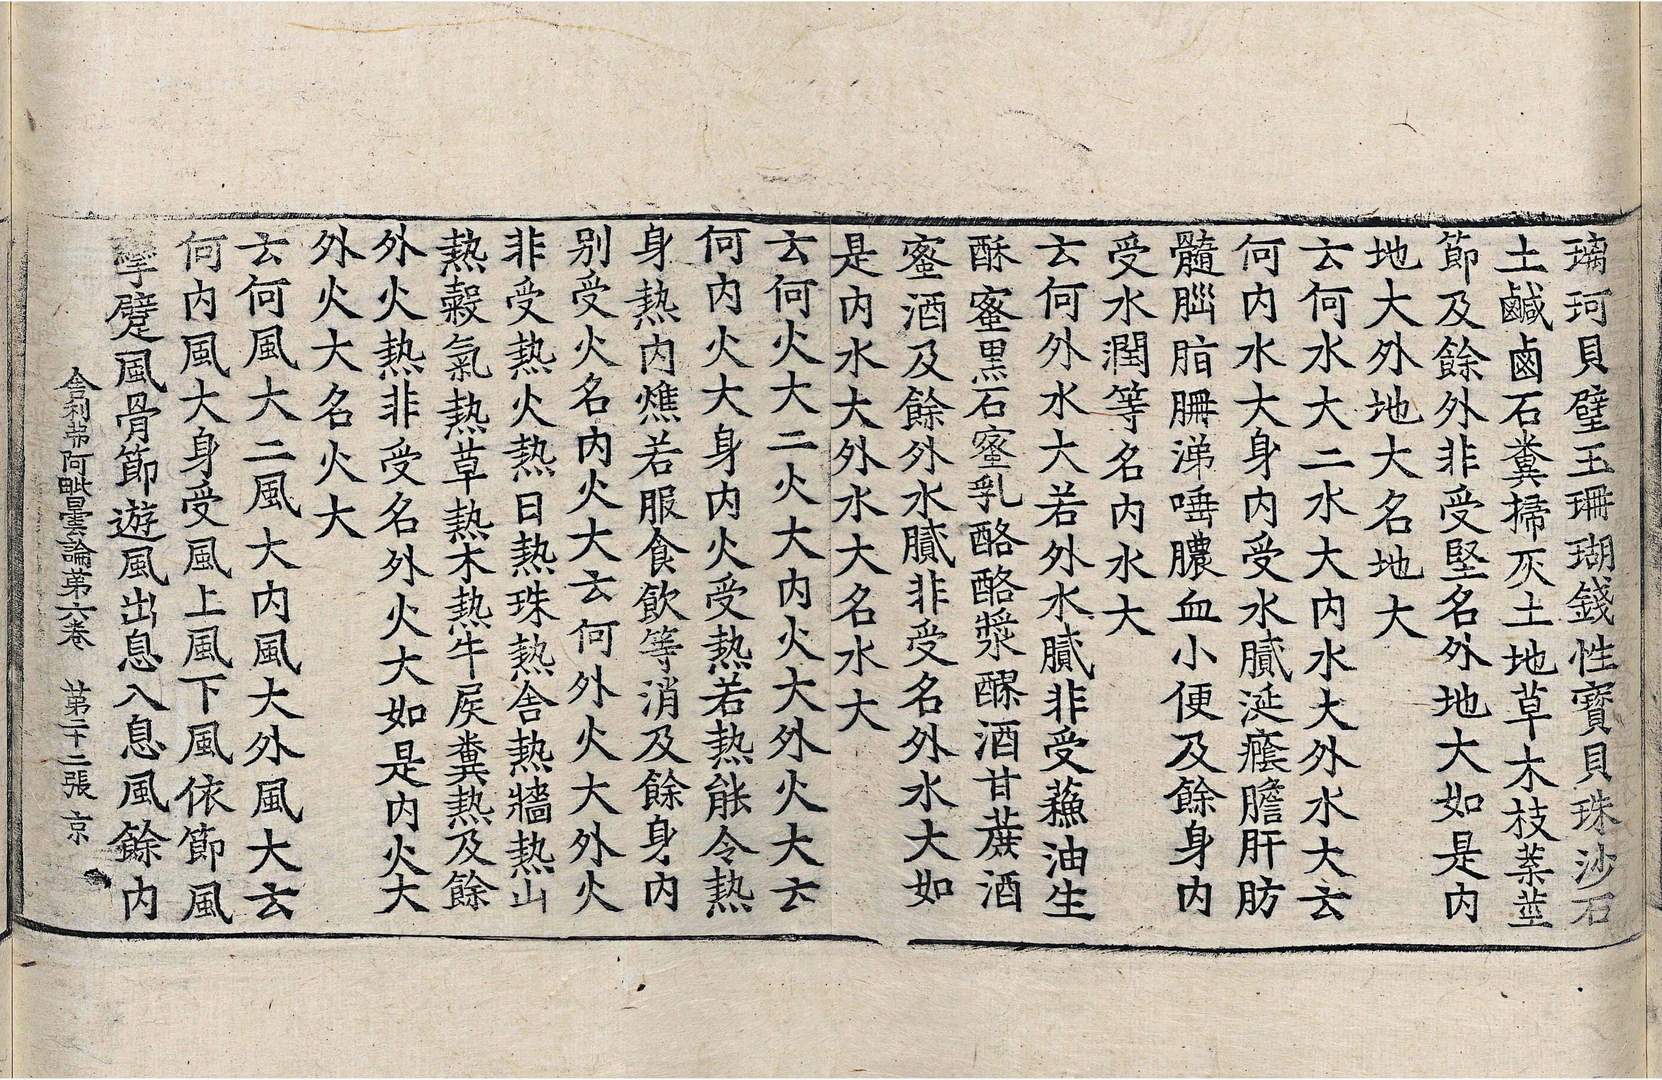 璃珂貝璧玉珊瑚錢性寶貝珠沙石
土鹹鹵石糞掃灰土地草木枝葉莖
節及餘外非受堅名外地大如是內
地大外地大名地大
云何水大二水大內水大外水大云
何內水大身內受水膩涎癊膽肝肪
髓腦脂𦙱涕唾膿血小便及餘身內
受水潤等名內水大
云何外水大若外水膩非受蘓油生
酥蜜黑石蜜乳酪酪漿醪酒甘蔗酒
蜜酒及餘外水膩非受名外水大如
是內水大外水大名水大
云何火大二火大內火大外火大云
何內火大身內火受熱若熱能令熱
身熱內燋若服食飲等消及餘身內
別受火名內火大云何外火大外火
非受熱火熱日熱珠熱舍熱牆熱山
熱穀氣熱草熱木熱牛屎糞熱及餘
外火熱非受名外火大如是內火大
外火大名火大
云何風大二風大內風大外風大云
何內風大身受風上風下風依節風
攣躄風骨節遊風出息入息風餘內
舍利弗阿毗曇論第六卷 第二十二張 京